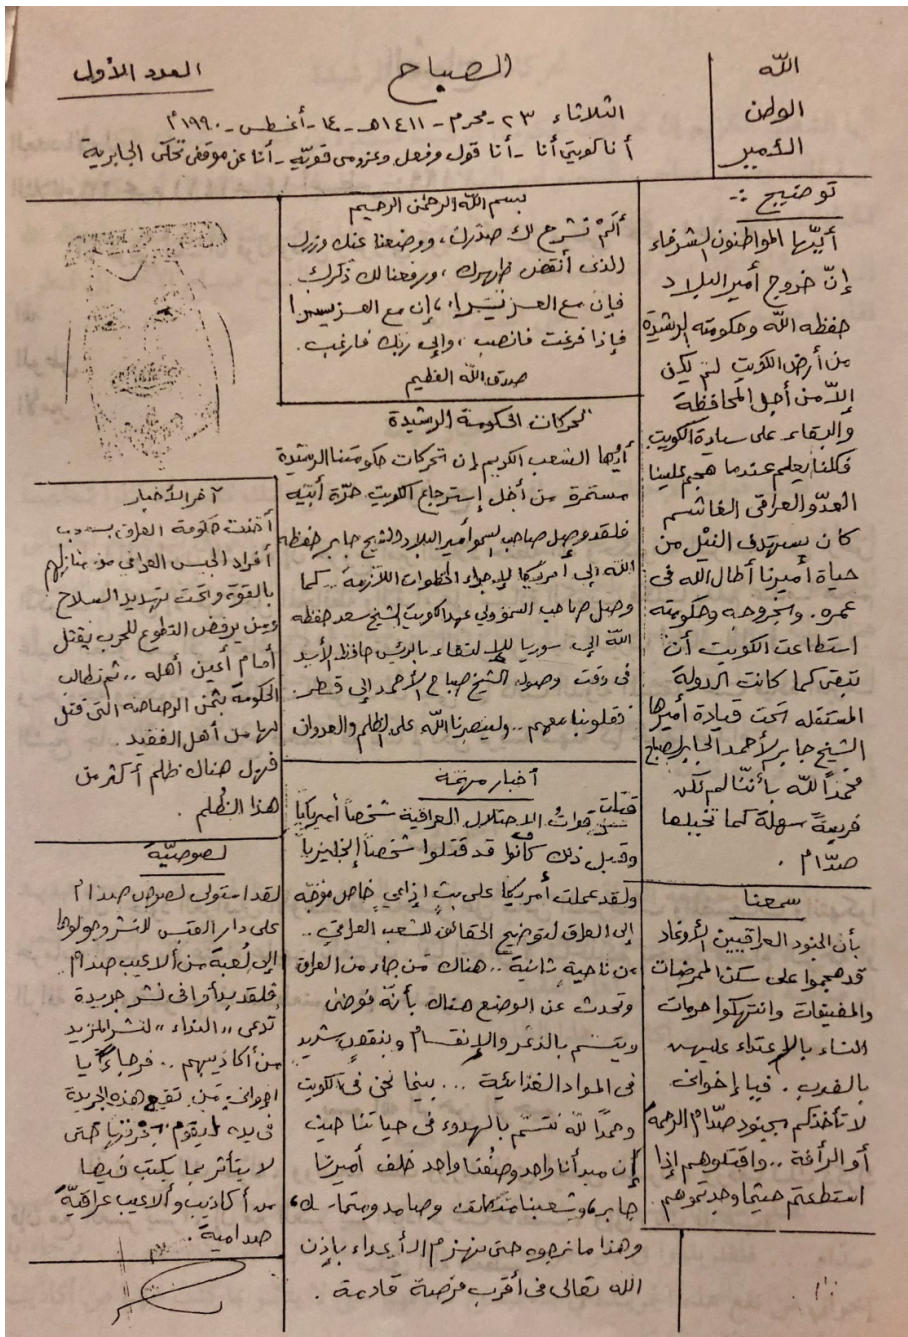 الله
الوطن
الأمير
الصباح
العدد الأول
الثلاثاء ٢٣ - محرم - ١٤١١هـ - ١٤ - أغسطس - ١٩٩٠م
أنا كويتي أنا - أنا قول وفعل وعزومي قوية - أنا عن موقفي تحكي الجابرية
توضيح :-
أيّها المواطنون الشرفاء
إنّ خروج أمير البلاد
حفظه الله وحكومته الرشيدة
من أرض الكويت لم يكن
إلاّ من أجل المحافظة
والبقاء على سيادة الكويت
فكلنا يعلم عندما هجم علينا
العدوّ العراقي الغاشم
كان يستهدف النيْل من
حياة أميرنا أطال الله في
عمره. وبخروجه وحكومته
استطاعت الكويت أن
تبقى كما كانت الدولة
المستقله تحت قيادة أميرها
الشيخ جابر الأحمد الجابر الصباح
فحمداً لله بأننّا لم نكن
فريسةً سهلة كما تخيلها
صدّام .
سمعنا
بأن الجنود العراقيين الأوغاد
قد هجموا على سكن الممرضات
والمضيفات وانتهكوا حرمات
النساء بالإعتداء عليهن
بالضرب . فيا إخواني
لا تأخذكم بجنود صدّام الرحمة
أو الرأفة .. واقتلوهم إذا
استطعتم حيثما وجدتموهم
بسم الله الرحمن الرحيم
ألمْ نشرح لك صدرك، ووضعنا عنك وزرك
الذي أنقض ظهرك، ورفعنا لك ذكرك
فإن مع العسر يسرا، إن مع العسر يسرا
فإذا فرغت فانصب، وإلى ربك فارغب.
صدق الله العظيم
تحركات الحكومة الرشيدة
أيّها الشعب الكريم إن تحركات حكومتنا الرشيدة
مستمرة من أجل إسترجاع الكويت حرّة أبيّه
فلقد وصل صاحب السمو أمير البلاد الشيخ جابر حفظه
الله إلى أمريكا لإجراء الخطوات اللازمة .. كما
وصل صاحب السمو ولي عهد الكويت الشيخ سعد حفظه
الله إلى سوريا للإلتقاء بالرئيس حافظ الأسد
في وقت وصول الشيخ صباح الأحمد إلى قطر.
فقلوبنا معهم .. ولينصرنا الله على الظلم والعدوان
أخبار مهمّة
قتلت قوات الاحتلال العراقية شخصاً أمريكياً
وقبل ذلك كانوا قد قتلوا شخصاً إنجليزياً
ولقد عملت أمريكا على بثٍ إذاعيٍ خاص موجّه
إلى العراق لتوضيح الحقائق للشعب العراقي ..
من ناحيةٍ ثانيةٍ .. هناك من جاء من العراق
وتحدث عن الوضع هناك بأنّه فوضى
ويتسم بالذعر والإنقسام وبنقصٍ شديد
في المواد الغذائية ... بينما نحن في الكويت
وحمداً لله نتسّم بالهدوء في حياتنا حيث
إن مبدأنا واحد وصفّنا واحد خلف أميرنا
جابر، وشعبنا متكاتف وصامد ومتماسك،
وهذا ما نرجوه حتى ينهزم الأعداء بإذن
الله تعالى في أقرب فرصة قادمة .
آخر الأخبار
أخذت حكومة العراق بسحب
أفراد الجيش العراقي من منازلهم
بالقوة وتحت تهديد السلاح
ومن يرفض التطوع للحرب يقتل
أمام أعين أهله .. ثم تطالب
الحكومة بثمن الرصاصة التي قتل
بها من أهل الفقيد .
فهل هناك ظلم أكثر من
هذا الظُلم .
لصوصيّة
لقد استولى لصوص صدام
على دار القبس للنشر وحولوها
إلى لُعبة من ألاعيب صدام
فلقد بدأوا في نشر جريدة
تدعى "النداء" لنشر المزيد
من أكاذيبهم .. فرجاءً يا
اخواني من تقع هذه الجريدة
في يده ليقوم بحرقها حتى
لا يتأثر بما يكتب فيها
من أكاذيب وألاعيب عراقيّة
صدامية .